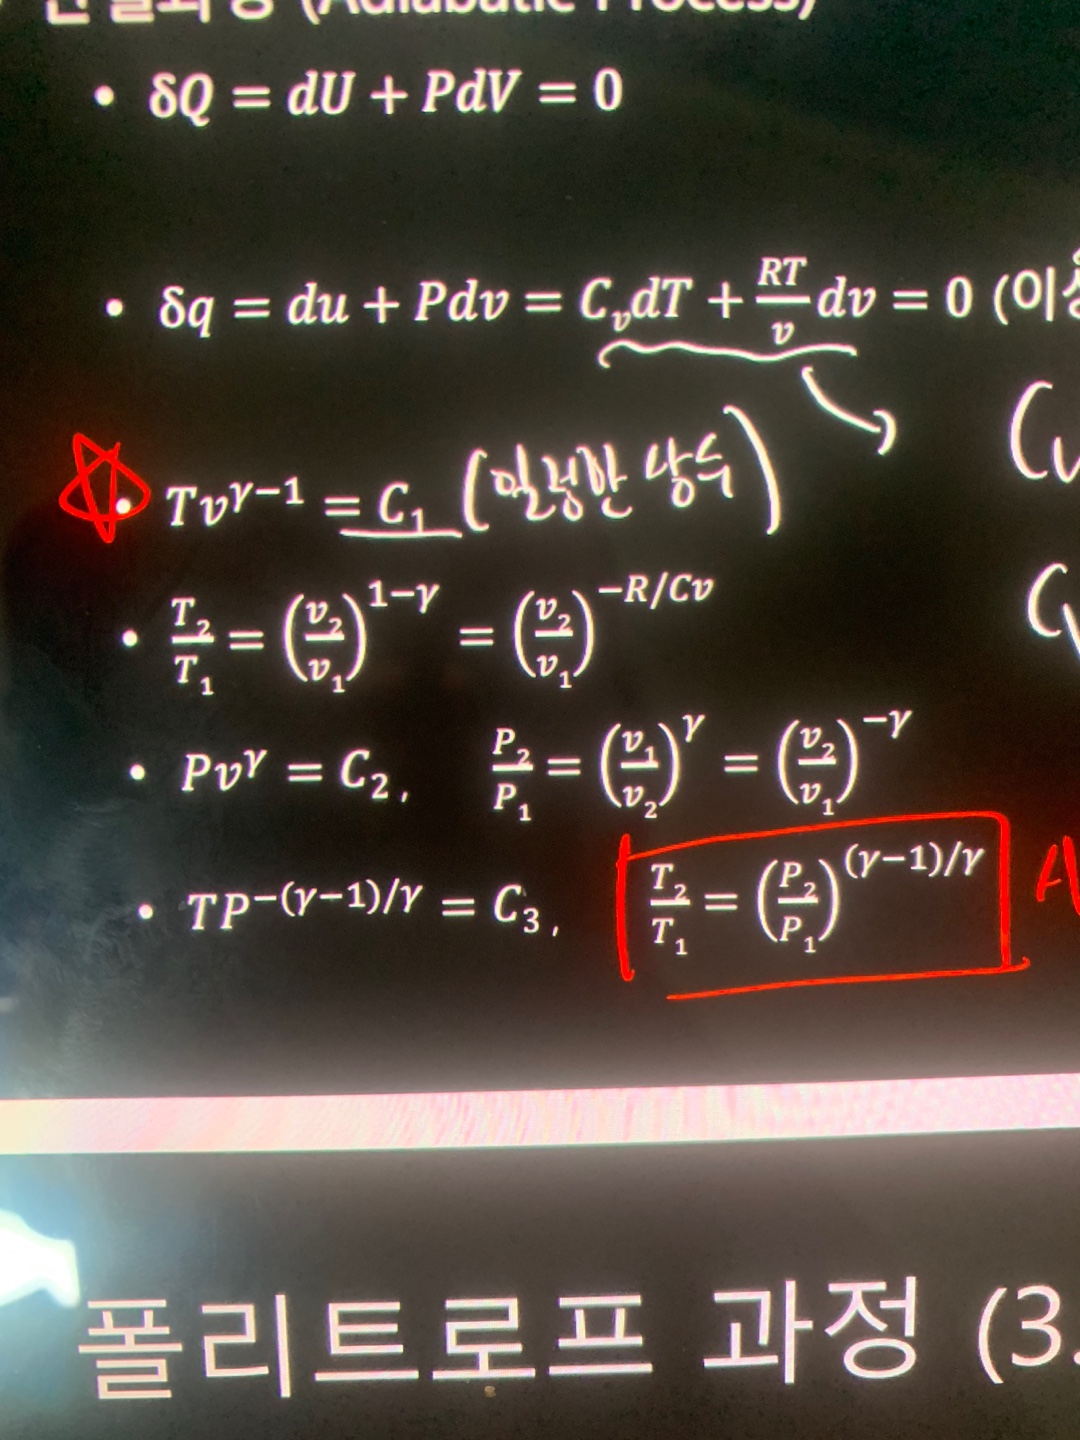 (Adiabatic Process)
• δQ = dU + PdV = 0
• δq = du + Pdv = CᵥdT + RT/v dv = 0 (이상
• Tv^(γ−1) = C₁ (일정한 상수)
• T₂/T₁ = (v₂/v₁)^(1−γ) = (v₂/v₁)^(−R/Cv)
• Pv^γ = C₂, P₂/P₁ = (v₁/v₂)^γ = (v₂/v₁)^(−γ)
• TP^(−(γ−1)/γ) = C₃, T₂/T₁ = (P₂/P₁)^((γ−1)/γ)
폴리트로프 과정 (3.